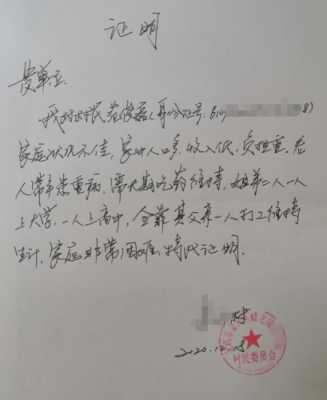 证明
贵单位
我村村民 (身份证号:610 8)
家庭状况不佳,家中人口多,收入低,负担重,老
人常年患重病,需长期吃药维持,姐弟二人一人
上大学,一人上高中,全靠其父亲一人打工维持
生计,家庭非常困难,特此证明.
村
2020.12.18
村民委员会